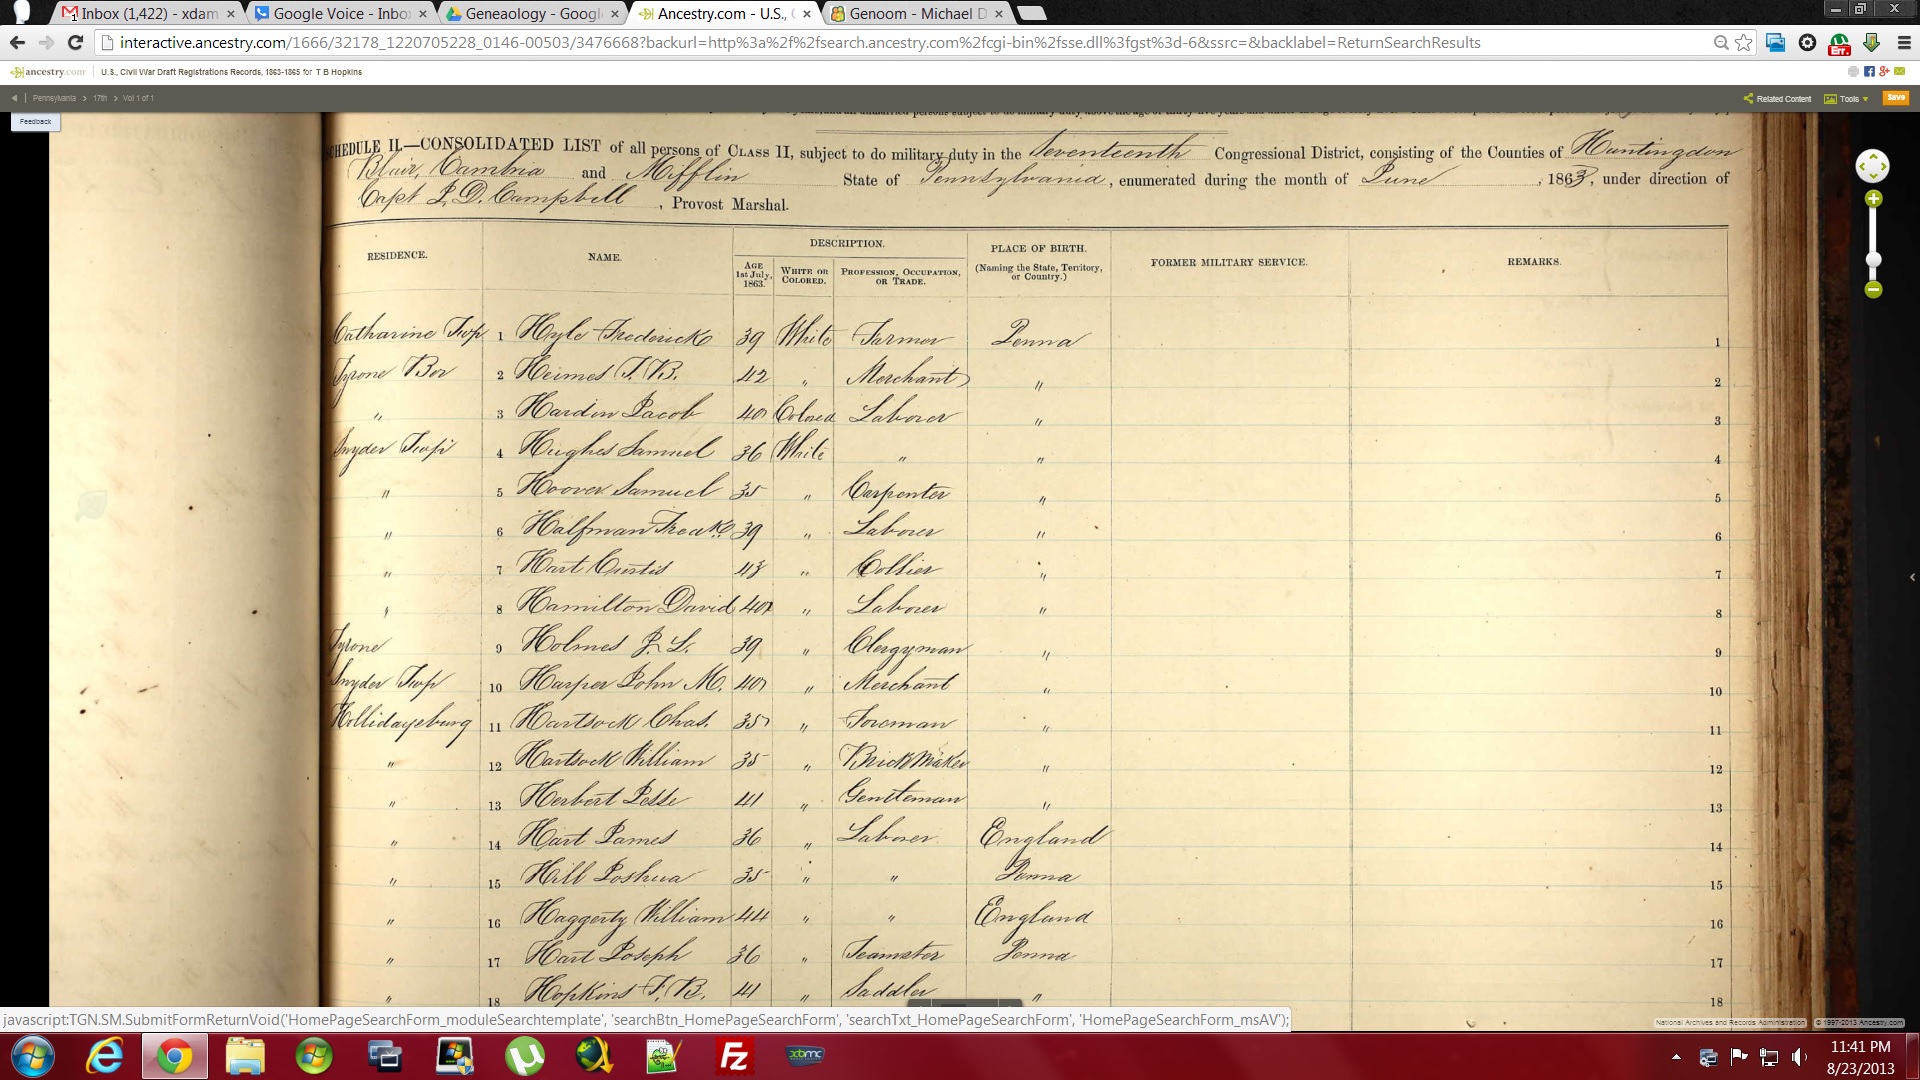 Inbox (1,422) - xdam × Google Voice - Inbo × Genealogy - Google × Ancestry.com - U.S., × Genoom - Michael D ×
interactive.ancestry.com/1666/32178_1220705228_0146-00503/3476668?backurl=http%3a%2f%2fsearch.ancestry.com%2fcgi-bin%2fsse.dll%3fgst%3d-6&ssrc=&backlabel=ReturnSearchResults
ancestry.com U.S., Civil War Draft Registrations Records, 1863-1865 for T B Hopkins
Pennsylvania > 17th > Vol 1 of 1 Related Content Tools Save
Feedback
SCHEDULE II.—CONSOLIDATED LIST of all persons of CLASS II, subject to do military duty in the Seventeenth Congressional District, consisting of the Counties of Huntingdon
Blair, Cambria and Mifflin State of Pennsylvania, enumerated during the month of June, 1863, under direction of
Capt J. D. Campbell, Provost Marshal.
DESCRIPTION.
RESIDENCE. NAME. AGE 1st July, 1863. WHITE OR COLORED. PROFESSION, OCCUPATION, OR TRADE. PLACE OF BIRTH. (Naming the State, Territory, or Country.) FORMER MILITARY SERVICE. REMARKS.
Catharine Twp 1 Hyle Frederick 39 White Farmer Penna 1
Tyrone Bor 2 Heimes T. B. 42 " Merchant " 2
" 3 Hardin Jacob 40 Colored Laborer " 3
Snyder Twp 4 Hughes Samuel 36 White " " 4
" 5 Hoover Samuel 35 " Carpenter " 5
" 6 Halfman Fredk 39 " Laborer " 6
" 7 Hart Curtis 43 " Collier " 7
" 8 Hamilton David 40 " Laborer " 8
Tyrone 9 Holmes J. L. 39 " Clergyman " 9
Snyder Twp 10 Harper John M. 40 " Merchant " 10
Hollidaysburg 11 Hartsock Chas. 35 " Foreman " 11
" 12 Hartsock William 35 " Brick Maker " 12
" 13 Herbert Jesse 41 " Gentleman " 13
" 14 Hart James 36 " Laborer England 14
" 15 Hill Joshua 35 " " Penna 15
" 16 Haggerty William 44 " " England 16
" 17 Hart Joseph 36 " Teamster Penna 17
" 18 Hopkins T. B. 41 " Saddler " 18
javascript:TGN.SM.SubmitFormReturnVoid('HomePageSearchForm_moduleSearchtemplate', 'searchBtn_HomePageSearchForm', 'searchTxt_HomePageSearchForm', 'HomePageSearchForm_msAV');
National Archives and Records Administration © 1997-2013 Ancestry.com
11:41 PM
8/23/2013